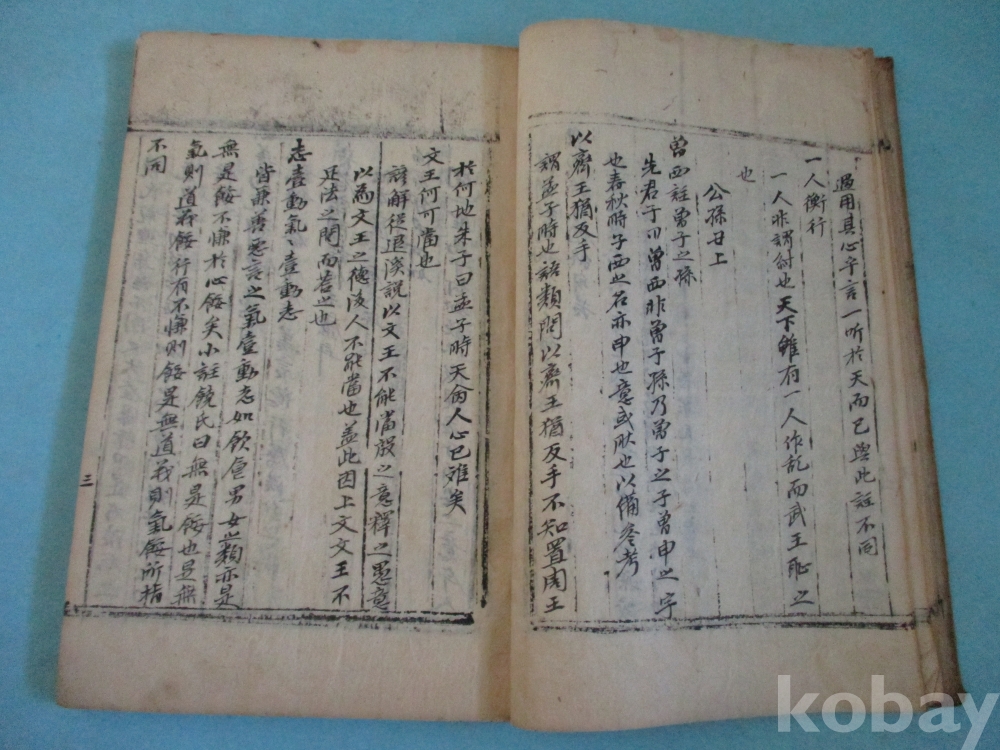 過用其心字言一听於天而已與此註不同
一人衡行
一人非謂紂也天下雖有一人作乱而武王恥之
也
公孫丑上
曾西註曾子之孫
先君子曰曾西非曾子孫乃曾子之子曾申之字
也春秋時子西之名亦申也意或然也以備参考
以齊王猶反手
謂孟子時也語類問以齊王猶反手不知置周王
於何地朱子曰孟子時天命人心已难矣
文王何可當也
諺解從退溪說以文王不能當殷之意釋之愚意
以為文王之德後人不能當也盖此因上文文王不
足法之問而答之也
志壹動氣〻壹動志
皆兼善惡言之氣壹動志如飲食男女之類亦是
無是餒不慊於心餒矣小註饒氏曰無是餒也是無
氣則道義餒行有不慊則餒是無道義則氣餒所指
不同
三
kobay